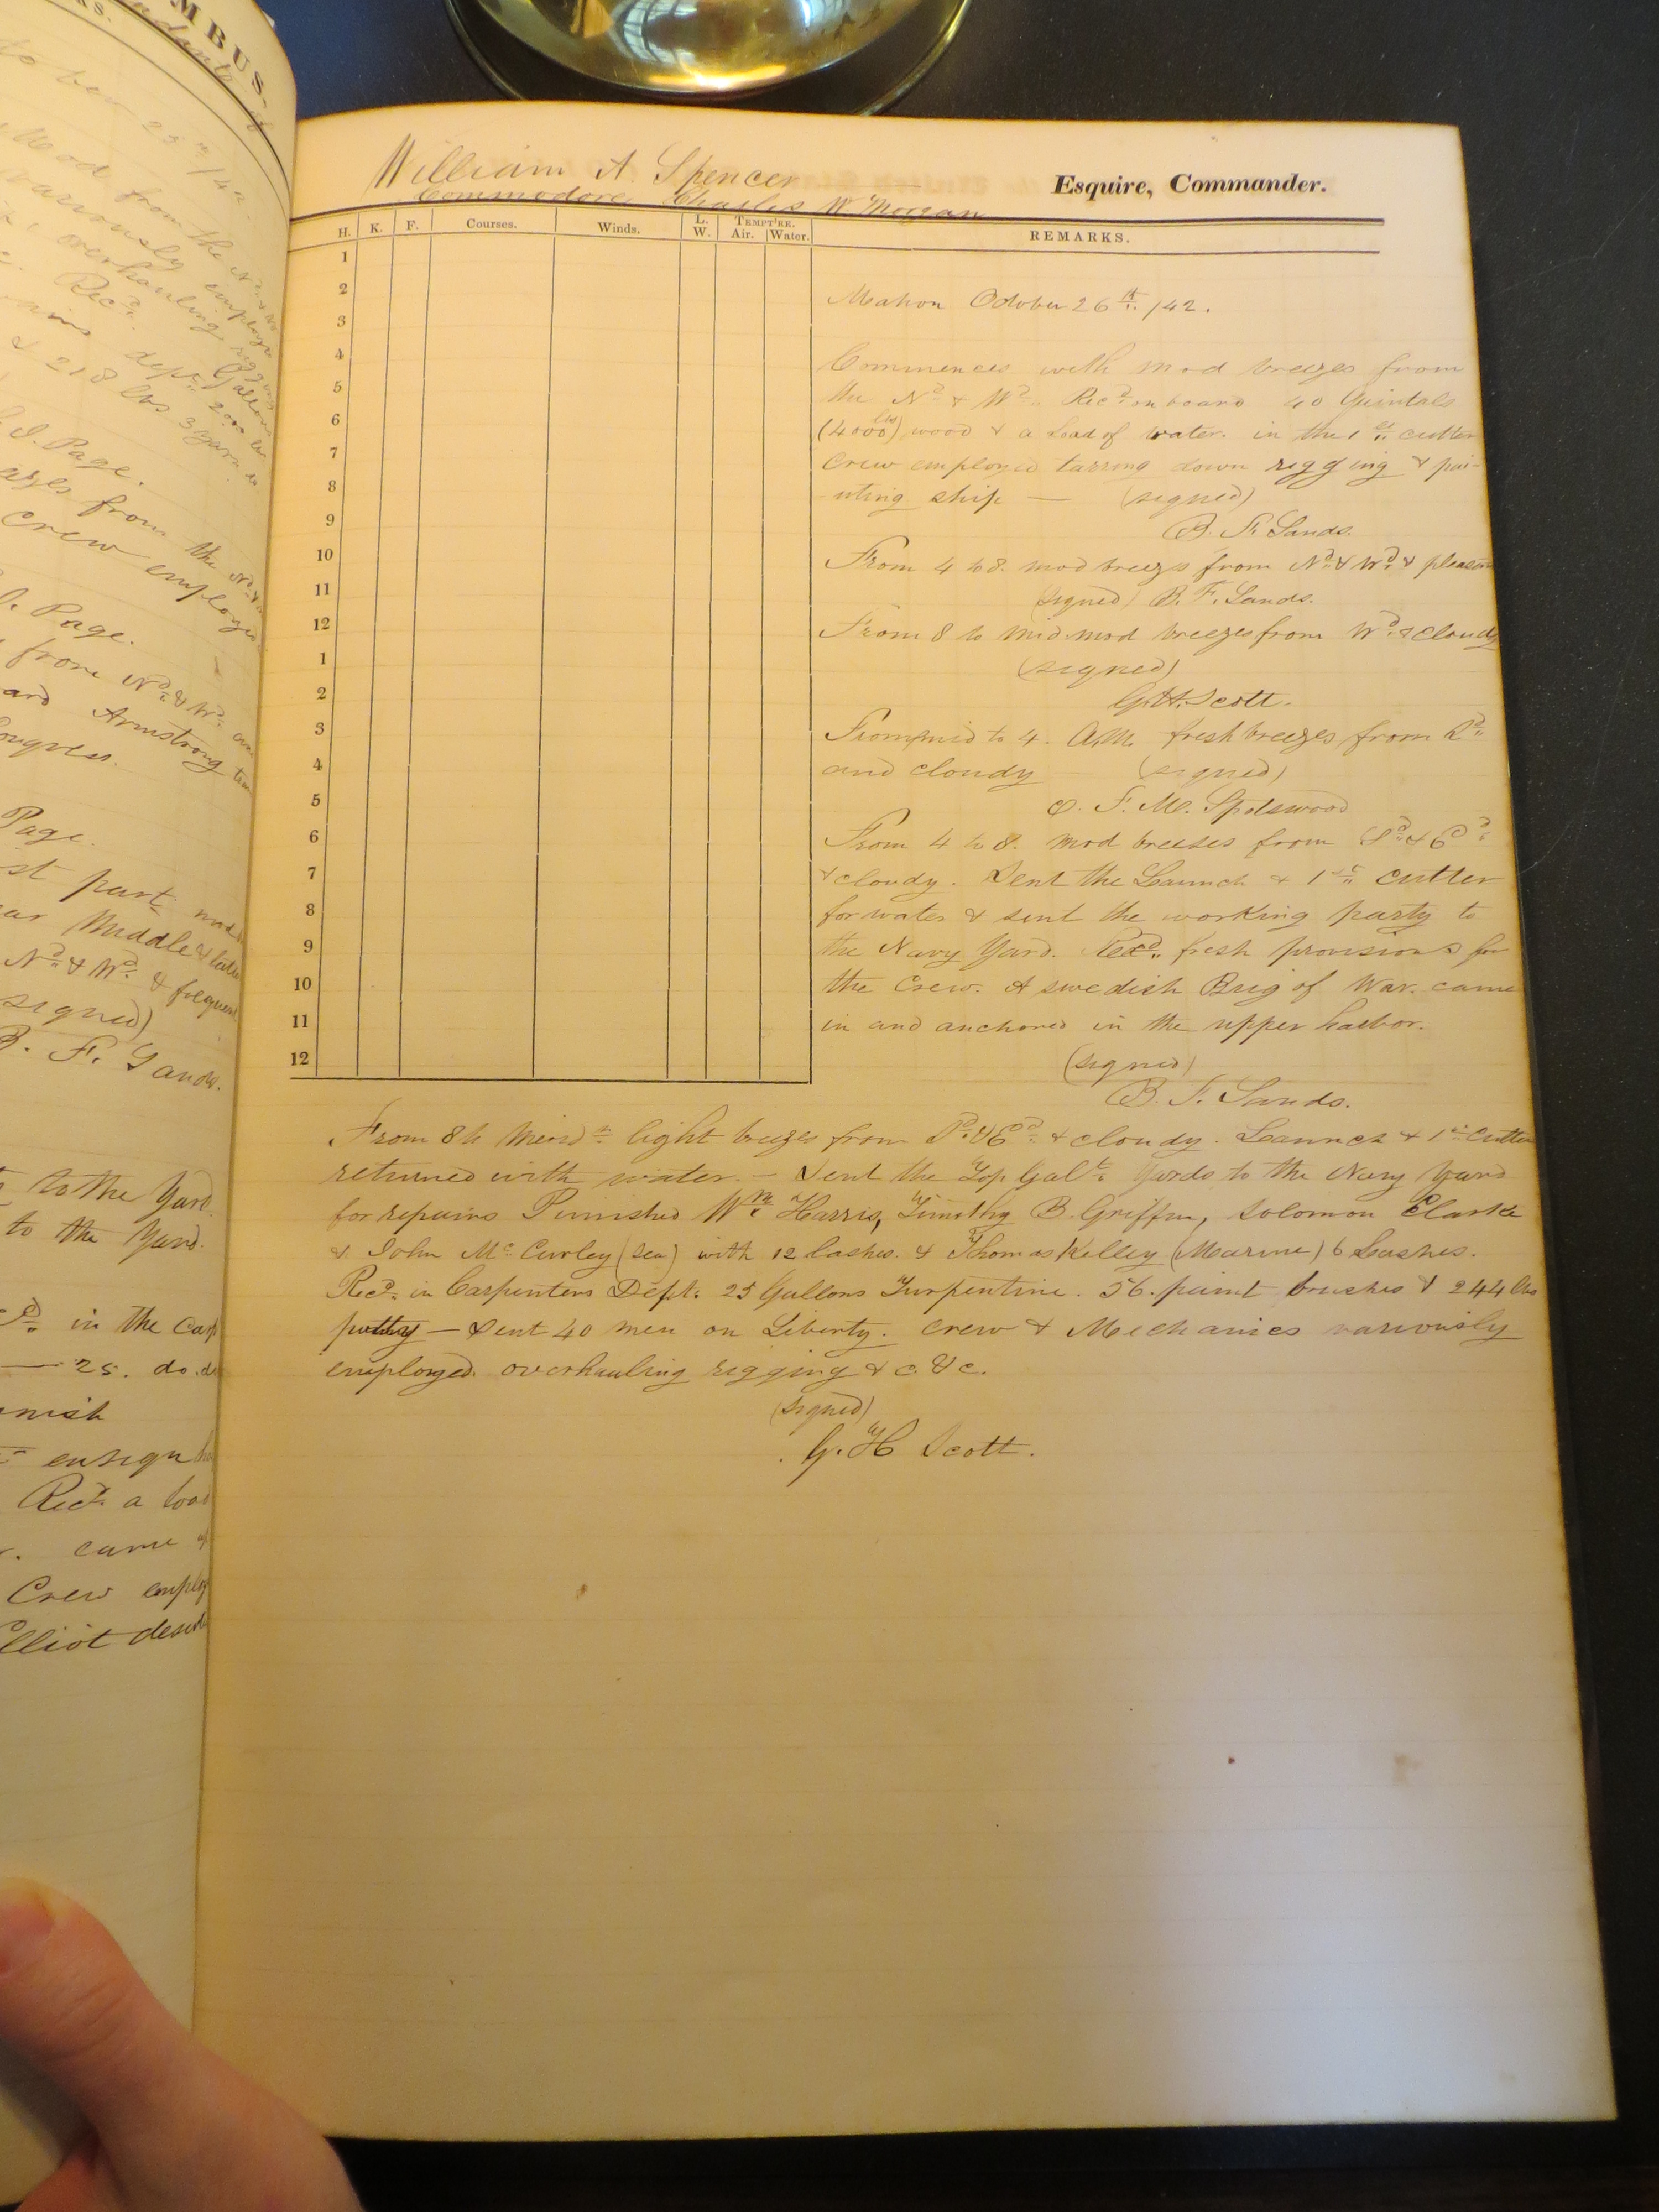 MBUS.
to
25th/42
Mod from the Nd
variously employ
overhauling rigging
Recd.
Gallons
dept. 2000 lbs
& 218 lbs 3 yarn
J. Page.
from the Nd &
Crew employed
J. Page.
from Nd & Wd. and
and Armstrong
Congress.
Page.
st part mod
Middle & latter
Nd & Wd. & frequent
signed)
B. F. Sands.
to the Yard.
to the Yard.
in the Carp
25. do. do
ensign
Recd. a load
came
Crew employ
Elliot
William A. Spencer Esquire, Commander.
Commodore Charles W Morgan
H. K. F. Courses. Winds. L. W. Tempt're. Air. Water. REMARKS.
1
2
3
4
5
6
7
8
9
10
11
12
1
2
3
4
5
6
7
8
9
10
11
12
Mahon October 26th /42.
Commences with mod breezes from
the Nd & Wd. Recd on board 40 Quintals
(4000 lbs) wood & a load of water. in the 1st cutter
Crew employed tarring down rigging & pai-
-nting ship — (signed)
B. F. Sands.
From 4 to 8. mod breezes from Nd & Wd & pleasant
(signed) B. F. Sands.
From 8 to mid. mod breezes from Wd & cloudy
(signed)
G. H. Scott.
From mid to 4. A.M. fresh breezes from Sd
and cloudy (signed)
C. F. M. Spotswood
From 4 to 8. mod breezes from Sd & Ed
& cloudy. Sent the Launch & 1st cutter
for water & sent the working party to
the Navy Yard. Recd. fresh provisions for
the Crew. A swedish Brig of War. came
in and anchored in the upper harbor.
(signed)
B. F. Sands.
From 8 to Merid n light breezes from Sd & Ed & cloudy. Launch & 1st Cutter
returned with water. — Sent the Top Galt. Yards to the Navy Yard
for repairs Punished Wm Harris, Timothy B. Griffin, Solomon Clarke
& John Mc Curley (sea) with 12 lashes. & Thomas Kelley (Marine) 6 Lashes.
Recd. in Carpenters Dept. 25 Gallons Turpentine. 56. paint brushes & 244 lbs
putty — Sent 40 men on Liberty. Crew & Mechanics variously
employed. overhauling rigging & c. & c.
(signed)
G. H Scott.